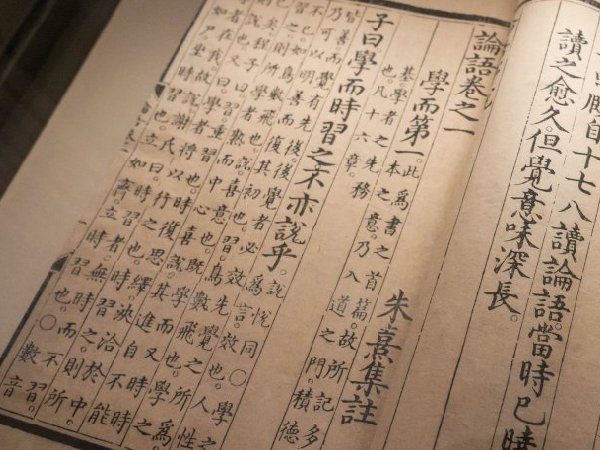 頤自十七八讀論語。當時已曉
讀之愈久。但覺意味深長。
論語卷之一
朱熹集註
學而第一
此為書之首篇。故所記多
本之意。乃入道之門。積德
基。學者之先務
也。凡十六章。
子曰。學而時習之。不亦說乎。
說悅同。○學
之為言效也。人性
皆善。而覺有先後。後覺者必效先覺之所為。
乃可以明善而復其初也。習。鳥數飛也。學之
不已。如鳥數飛也。說。喜意也。既學而又時時習
之。則所學者熟。而中心喜說。其進自不能
已矣。程子曰。習。重習也。時復思繹。浹洽於中。則
說也。又曰。學者。將以行之也。時習之。則所
學者在我。故說。謝氏曰。時習者。無時而不習。
坐如尸。坐時習也。立如齊。立時習也。○數音